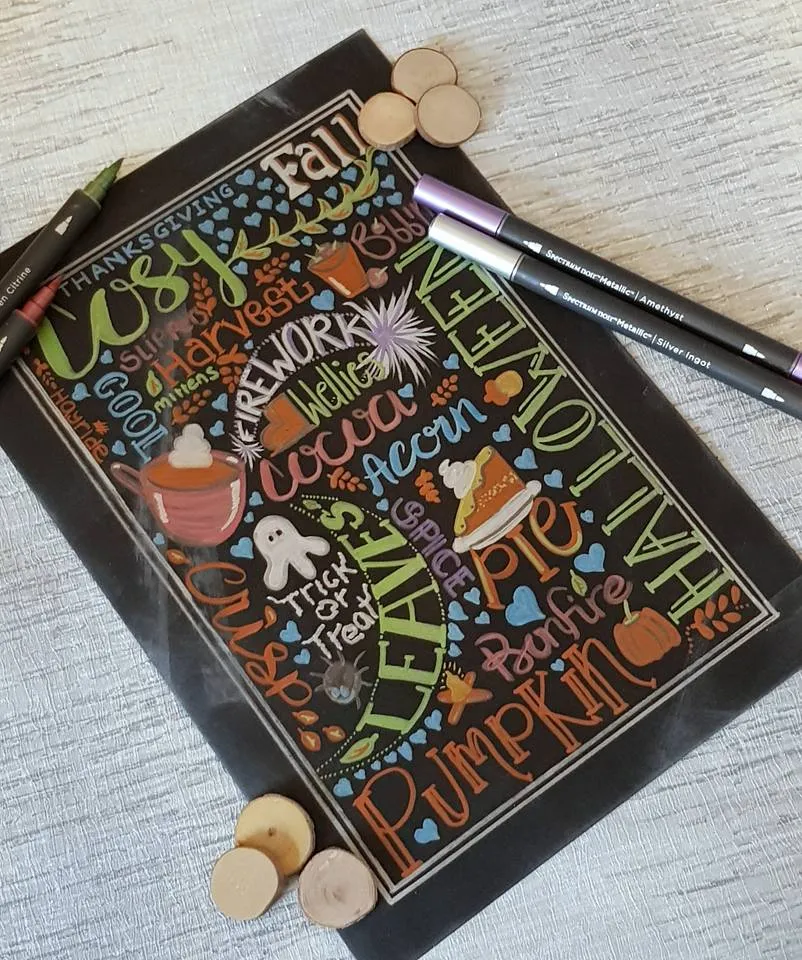 Fall
THANKSGIVING
Cosy
Harvest
mittens
COOL
Hayride
FIREWORK
Wellies
HALLOWEEN
cocoa
Acorn
SPICE
PIE
TRICK
or
Treat
LEAVES
CRISP
Bonfire
PUMPKIN
en Citrine
SPECTRUM NOIR™ Metallic | Amethyst
SPECTRUM NOIR™ Metallic | Silver Ingot